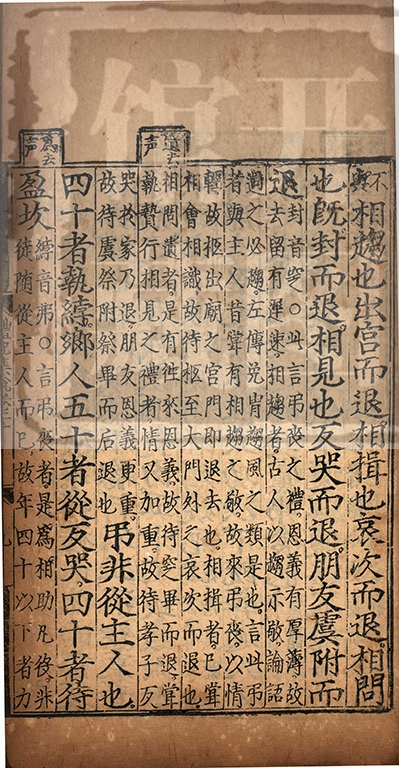 遺去声
為去声
不
與
相趨也出宮而退相揖也哀次而退相問
也既封而退相見也反哭而退朋友虞附而
退
封音窆○此言弔喪之禮恩義有厚薄故
去留有遲速相趨者古人以趨示敬論語
過之必趨左傳免冑趨風之類是也言此弔
者與主人昔嘗有相趨之敬故來弔喪以情
輕故柩出廟之宮門即退去也相揖者已嘗
相會相識故待柩至大門外之哀次而退也
相問遺者是有往來恩義故待窆畢而退嘗
執贄行相見之禮者情又加重故待孝子反
哭於家乃退朋友恩義更重
故待虞祭附祭畢而后退也
弔非從主人也
四十者執綍鄉人五十者從反哭四十者待
盈坎
綍音弗○言弔喪者是為相助凡役非
徒隨從主人而已故年四十以下者力